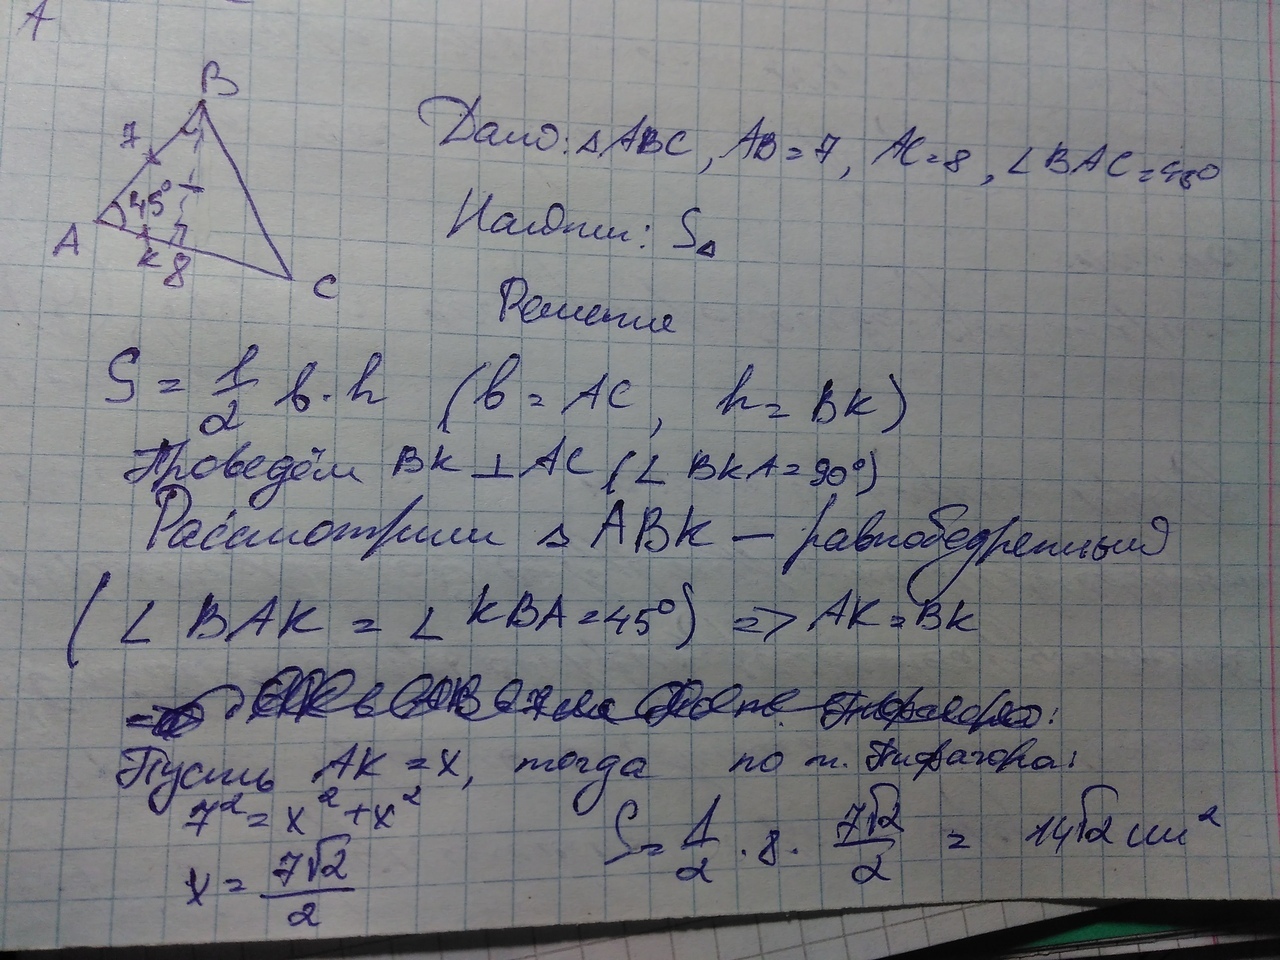 A
B
7
45°
A
K
8
C
Дано: △ABC, AB=7, AC=8, ∠BAC=45°
Найти: S△
Решение
S = 1/2 b·h (b = AC, h = BK)
Проведём BK ⊥ AC (∠BKA=90°)
Рассмотрим △ABK — равнобедренный
(∠BAK = ∠KBA=45°) => AK=BK
Пусть AK=x, тогда по т. Пифагора:
7² = x² + x²
x = 7√2/2
S = 1/2 · 8 · 7√2/2 = 14√2 см²